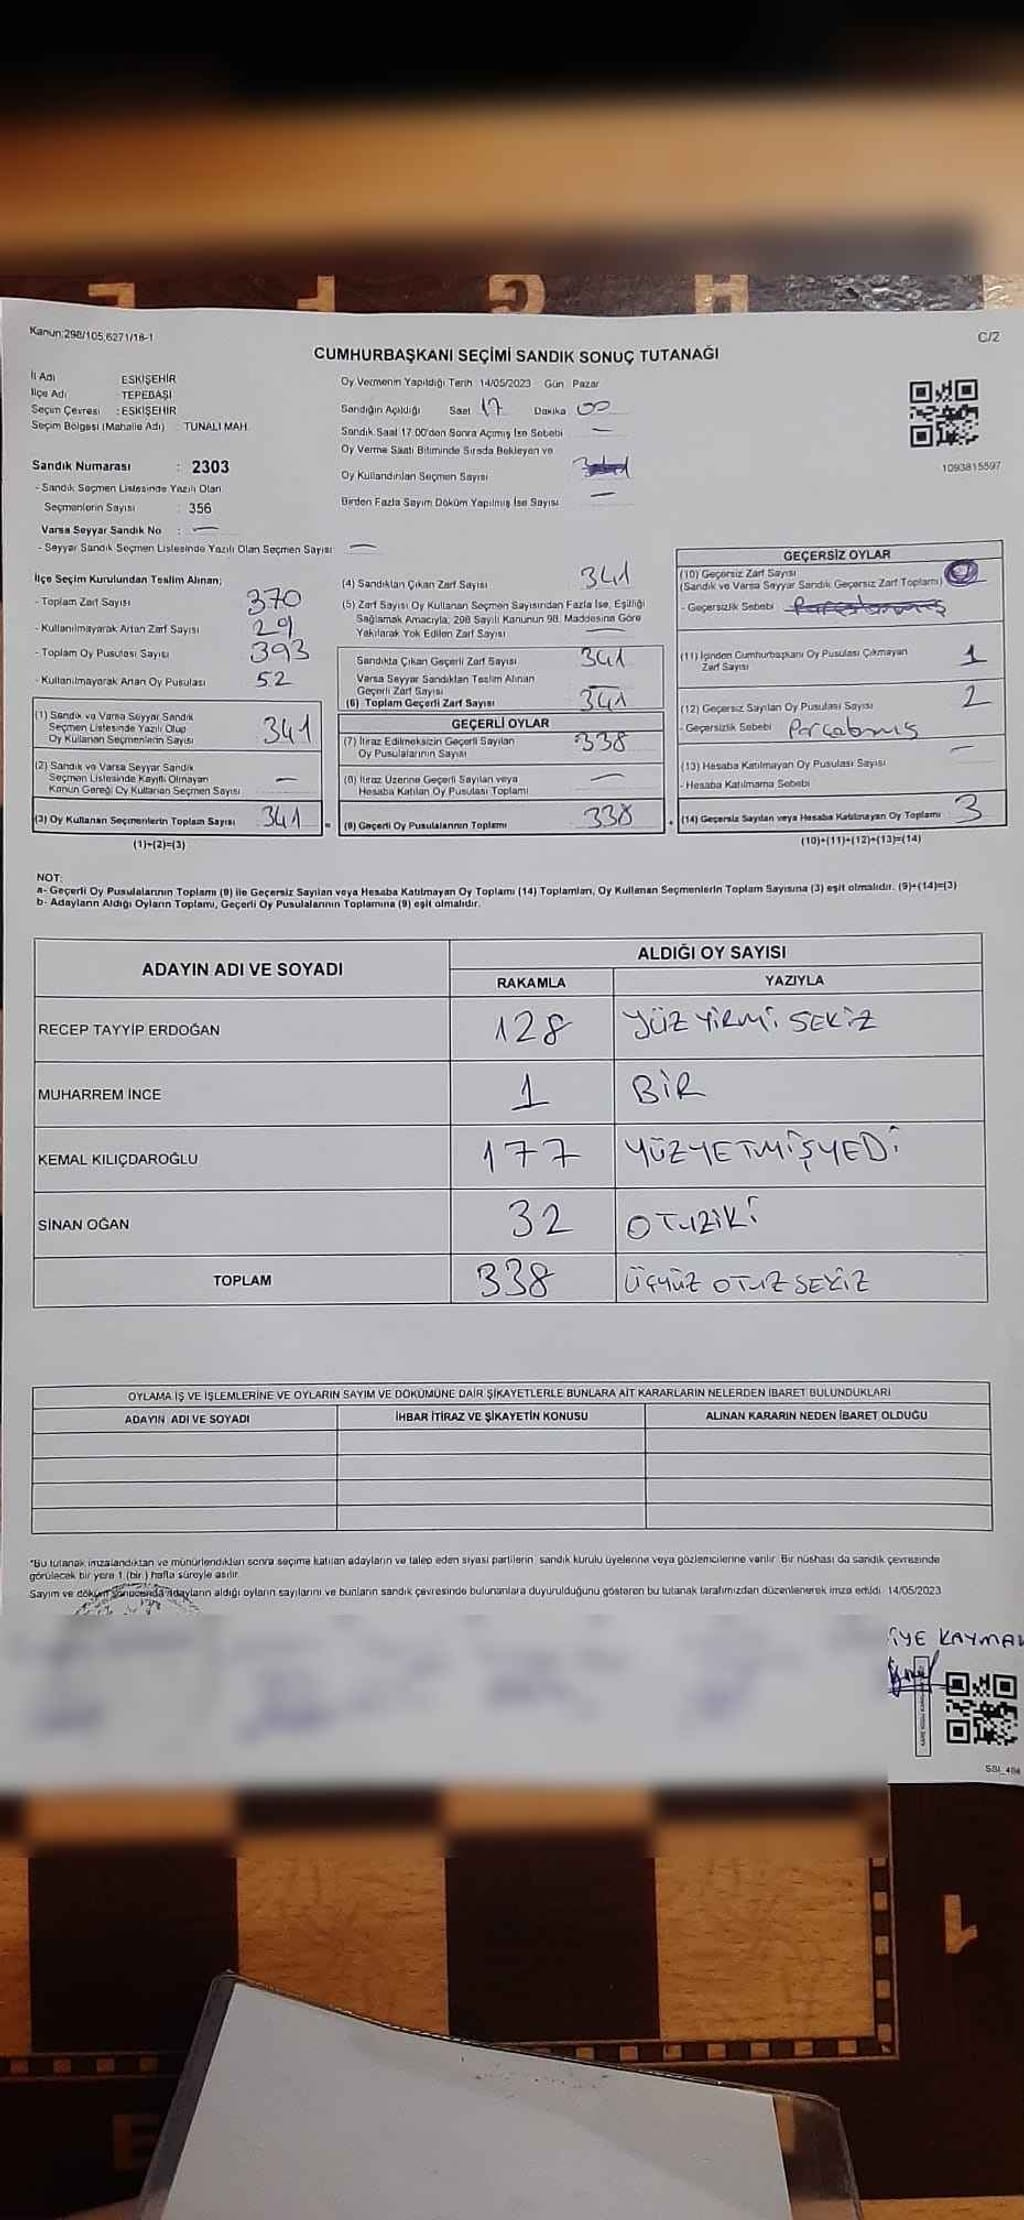 H G F E
Kanun;298/105;6271/18-1
C/2
CUMHURBAŞKANI SEÇİMİ SANDIK SONUÇ TUTANAĞI
İl Adı ESKİŞEHİR
İlçe Adı TEPEBAŞI
Seçim Çevresi : ESKİŞEHİR
Seçim Bölgesi (Mahalle Adı) TUNALI MAH.
Sandık Numarası : 2303
- Sandık Seçmen Listesinde Yazılı Olan
Seçmenlerin Sayısı : 356
Varsa Seyyar Sandık No : —
- Seyyar Sandık Seçmen Listesinde Yazılı Olan Seçmen Sayısı —
Oy Vermenin Yapıldığı Tarih 14/05/2023 Gün Pazar
Sandığın Açıldığı Saat 17 Dakika 00
Sandık Saat 17.00'den Sonra Açılmış İse Sebebi —
Oy Verme Saati Bitiminde Sırada Bekleyen ve
Oy Kullandırılan Seçmen Sayısı
Birden Fazla Sayım Döküm Yapılmış İse Sayısı —
1093815597
İlçe Seçim Kurulundan Teslim Alınan;
- Toplam Zarf Sayısı 370
- Kullanılmayarak Artan Zarf Sayısı 29
- Toplam Oy Pusulası Sayısı 393
- Kullanılmayarak Artan Oy Pusulası 52
(1) Sandık ve Varsa Seyyar Sandık
Seçmen Listesinde Yazılı Olup
Oy Kullanan Seçmenlerin Sayısı 341
(2) Sandık ve Varsa Seyyar Sandık
Seçmen Listesinde Kayıtlı Olmayan
Kanun Gereği Oy Kullanan Seçmen Sayısı —
(3) Oy Kullanan Seçmenlerin Toplam Sayısı 341
(1)+(2)=(3)
(4) Sandıktan Çıkan Zarf Sayısı 341
(5) Zarf Sayısı Oy Kullanan Seçmen Sayısından Fazla İse, Eşitliği
Sağlamak Amacıyla, 298 Sayılı Kanunun 98. Maddesine Göre
Yakılarak Yok Edilen Zarf Sayısı —
Sandıkta Çıkan Geçerli Zarf Sayısı 341
Varsa Seyyar Sandıktan Teslim Alınan
Geçerli Zarf Sayısı —
(6) Toplam Geçerli Zarf Sayısı 341
GEÇERLİ OYLAR
(7) İtiraz Edilmeksizin Geçerli Sayılan
Oy Pusulalarının Sayısı 338
(8) İtiraz Üzerine Geçerli Sayılan veya
Hesaba Katılan Oy Pusulası Toplamı —
(9) Geçerli Oy Pusulalarının Toplamı 338
GEÇERSİZ OYLAR
(10) Geçersiz Zarf Sayısı
(Sandık ve Varsa Seyyar Sandık Geçersiz Zarf Toplamı)
- Geçersizlik Sebebi
(11) İçinden Cumhurbaşkanı Oy Pusulası Çıkmayan
Zarf Sayısı 1
(12) Geçersiz Sayılan Oy Pusulası Sayısı 2
- Geçersizlik Sebebi Parçalanmış
(13) Hesaba Katılmayan Oy Pusulası Sayısı —
- Hesaba Katılmama Sebebi
(14) Geçersiz Sayılan veya Hesaba Katılmayan Oy Toplamı 3
(10)+(11)+(12)+(13)=(14)
NOT:
a- Geçerli Oy Pusulalarının Toplamı (9) ile Geçersiz Sayılan veya Hesaba Katılmayan Oy Toplamı (14) Toplamları, Oy Kullanan Seçmenlerin Toplam Sayısına (3) eşit olmalıdır. (9)+(14)=(3)
b- Adayların Aldığı Oyların Toplamı, Geçerli Oy Pusulalarının Toplamına (9) eşit olmalıdır.
ADAYIN ADI VE SOYADI
ALDIĞI OY SAYISI
RAKAMLA YAZIYLA
RECEP TAYYİP ERDOĞAN 128 YÜZ YİRMİ SEKİZ
MUHARREM İNCE 1 BİR
KEMAL KILIÇDAROĞLU 177 YÜZYETMİŞYEDİ
SİNAN OĞAN 32 OTUZİKİ
TOPLAM 338 ÜÇYÜZ OTUZ SEKİZ
OYLAMA İŞ VE İŞLEMLERİNE VE OYLARIN SAYIM VE DÖKÜMÜNE DAİR ŞİKAYETLERLE BUNLARA AİT KARARLARIN NELERDEN İBARET BULUNDUKLARI
ADAYIN ADI VE SOYADI İHBAR İTİRAZ VE ŞİKAYETİN KONUSU ALINAN KARARIN NEDEN İBARET OLDUĞU
*Bu tutanak imzalandıktan ve mühürlendikten sonra seçime katılan adayların ve talep eden siyasi partilerin sandık kurulu üyelerine veya gözlemcilerine verilir. Bir nüshası da sandık çevresinde
görülecek bir yere 1 (bir ) hafta süreyle asılır.
Sayım ve döküm sonucunda adayların aldığı oyların sayılarını ve bunların sandık çevresinde bulunanlara duyurulduğunu gösteren bu tutanak tarafımızdan düzenlenerek imza edildi. 14/05/2023
İYE KAYMAK
1
E